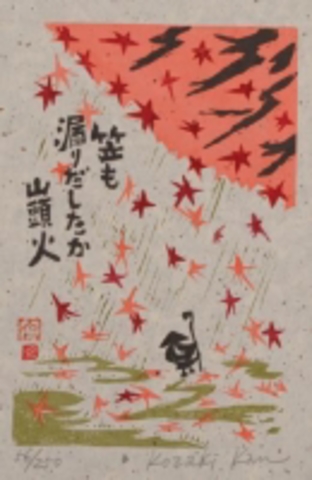 笠も
漏りだしたか
山頭火
56/250
Kozaki Kan